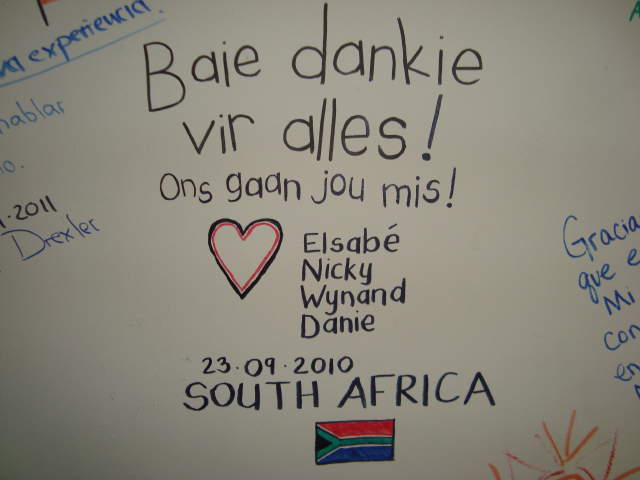 va experiencia.
hablar
o.
1.2011
Drexler
Baie dankie
vir alles!
Ons gaan jou mis!
Elsabé
Nicky
Wynand
Danie
23.09.2010
SOUTH AFRICA
Gracia
que e
Mi
con
en